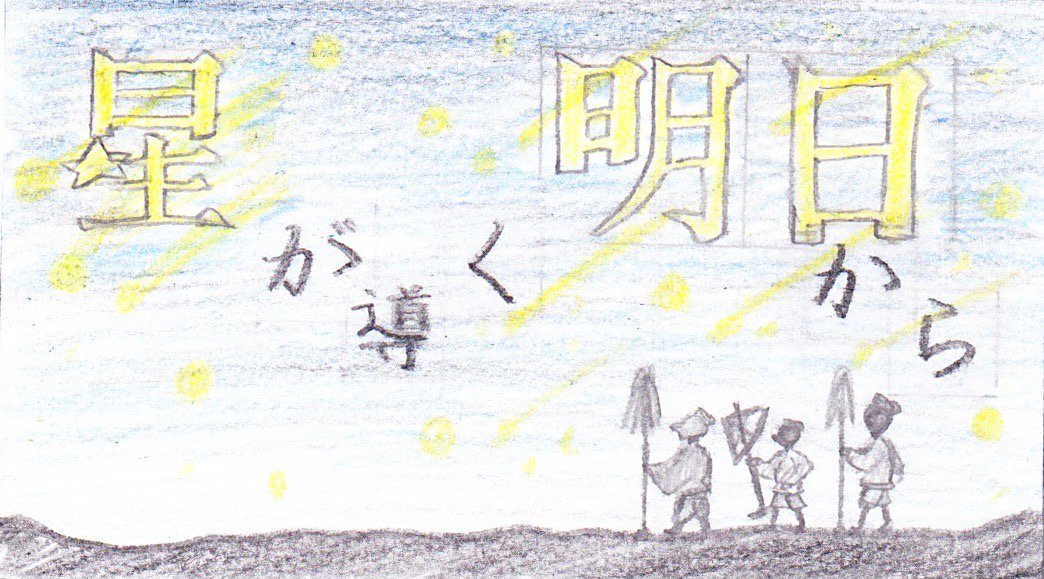 星が導く
明日から